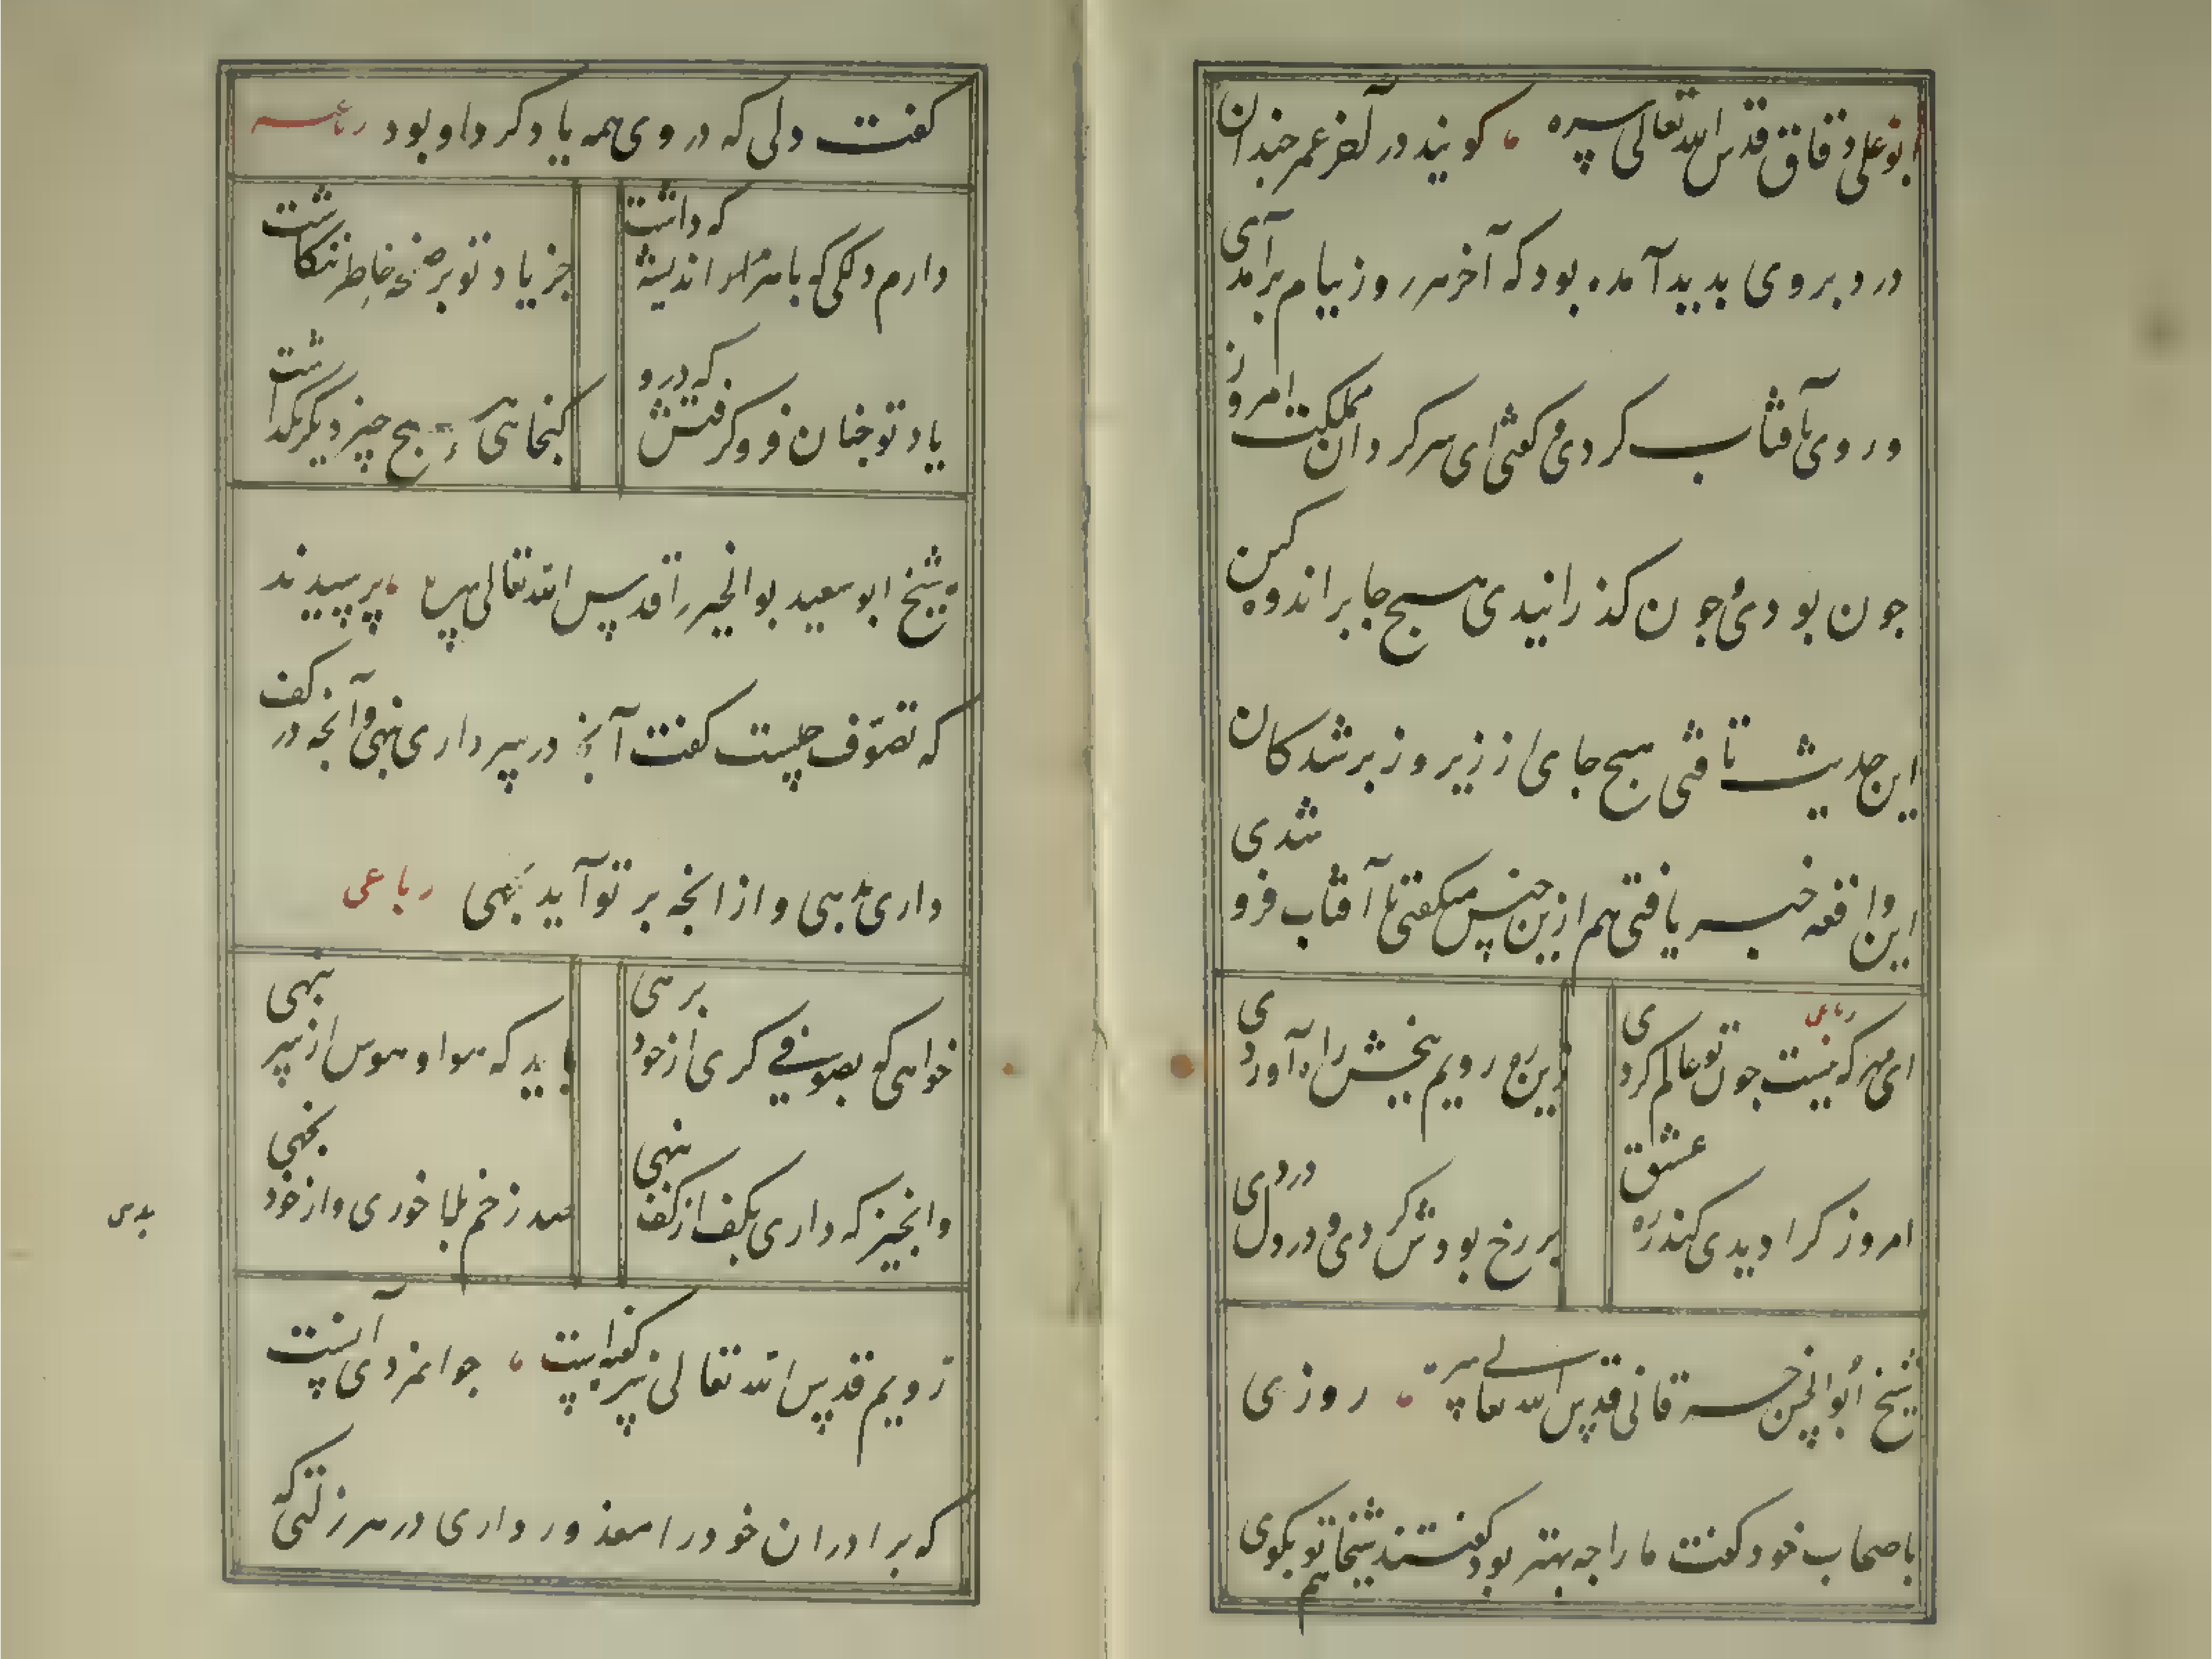 ابو علی دقاق قدس الله تعالی سره گویند در آخر عمر چندان
درد بروی پدید آمده بود که آخر هر روز ببام برآمدی
و روی بآفتاب کردی و گفتی ای سرگردان مملکت امروز
چون بودی و چون گذرانیدی هیچ جا بر اندوهگین
این حدیث تافتی هیچ جای از زیر و زبر شدگان
این واقعه خبر یافتی هم ازین جنس میگفتی تا آفتاب فرو شدی
رباعی
ای مهر که نیست چون تو عالم گردی
زین ره رویم بخش راه‌آوردی
امروز کرا دیدی کندر ره عشق
بر رخ بودش گردی و در دل دردی
شیخ ابو الحسن خرقانی قدس الله تعالی سره روزی
باصحاب خود گفت ما را چه بهتر بود گفتند شیخا هم تو بگوی
گفت دلی که در وی همه یاد کرد او بود رباعیه
دارم دلکی که با هزار اندیشه که داشت
جز یاد تو بر صفحه خاطر ننگاشت
یاد تو چنان فرو گرفتش که درو
گنجایی هیچ چیز دیگر نگذاشت
شیخ ابو سعید بو الخیر را قدس الله تعالی سره پرسیدند
که تصوف چیست گفت آنچه در سر داری بنهی و آنچه در کف
داری بدهی و از انچه بر تو آید نجهی رباعی
خواهی که بصوفی گری از خود برهی
باید که هوا و هوس از سر بنهی
وان چیز که داری بکف از کف بنهی
صد زخم بلا خوری و از خود نجهی
بدهی
رویم قدس الله تعالی سره گفته است جوانمردی آنست
که برادران خود را معذور داری در هر زلتی که